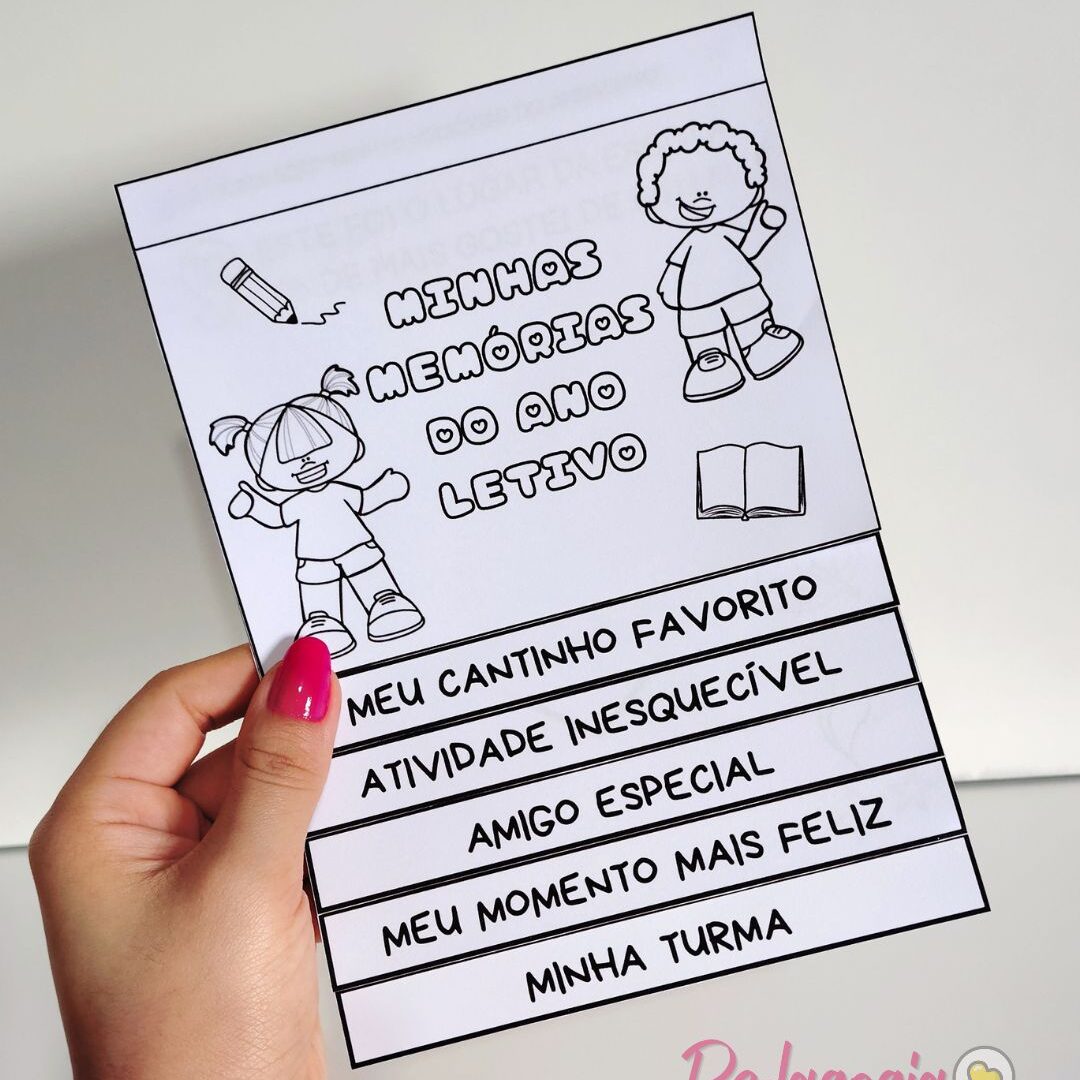 MINHAS
MEMÓRIAS
DO ANO
LETIVO
MEU CANTINHO FAVORITO
ATIVIDADE INESQUECÍVEL
AMIGO ESPECIAL
MEU MOMENTO MAIS FELIZ
MINHA TURMA